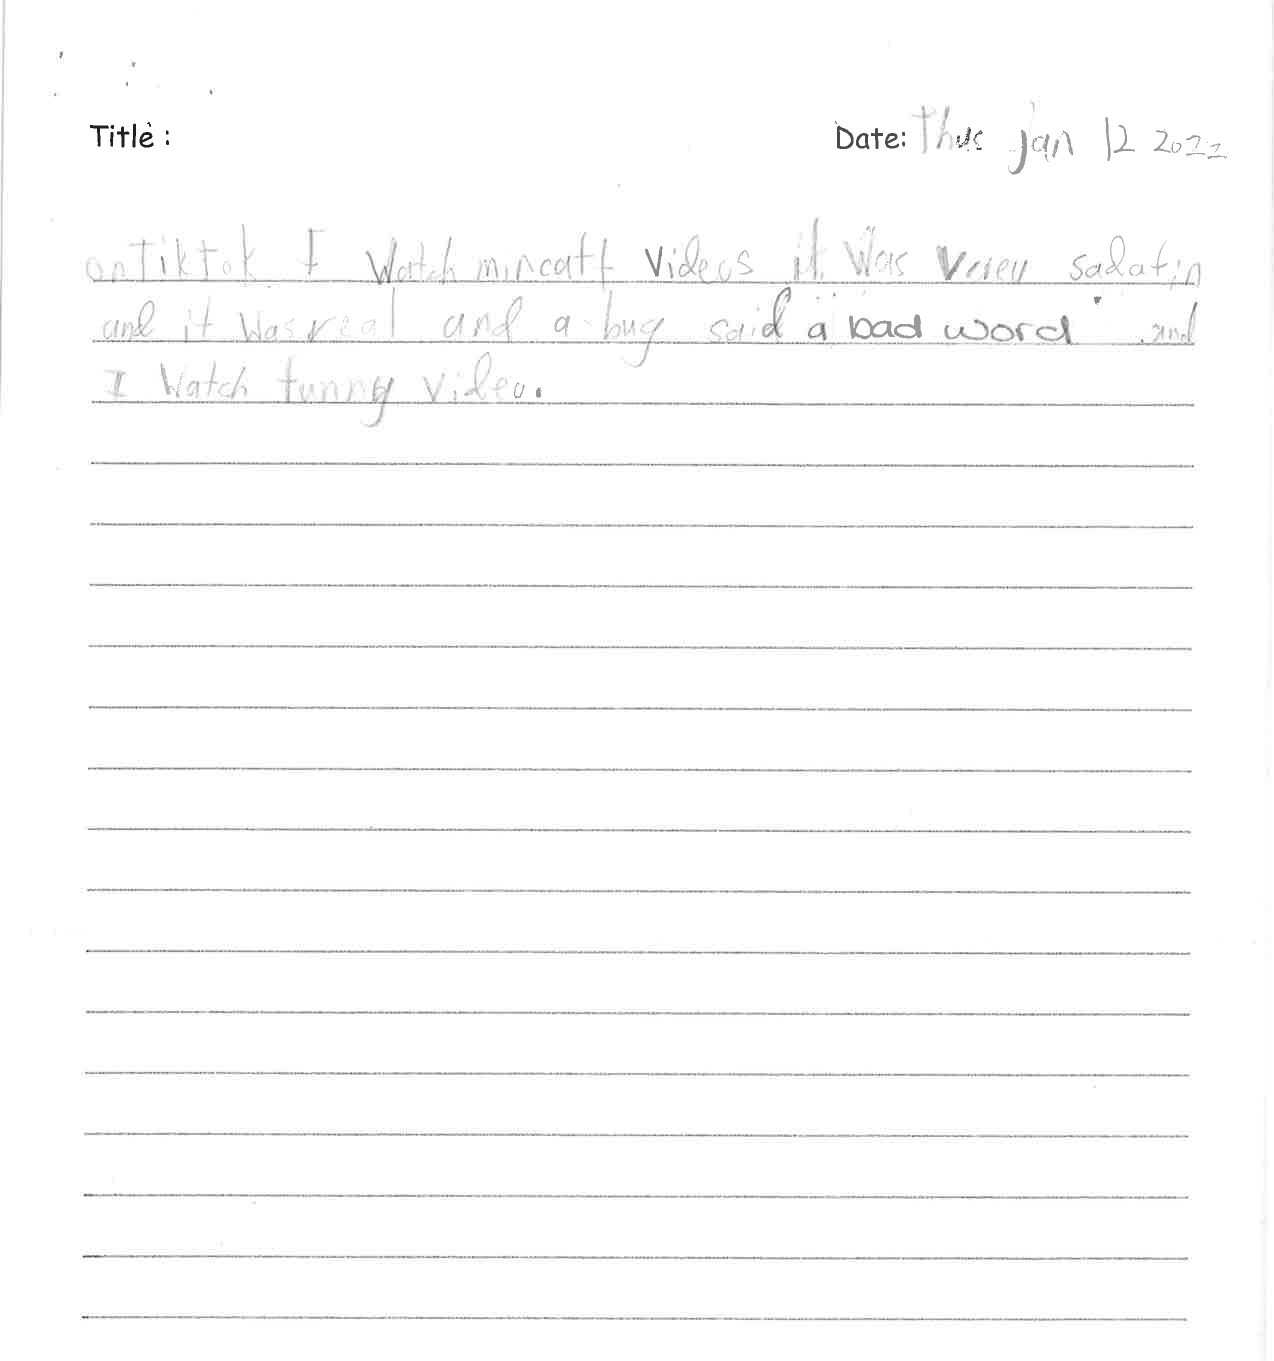 Title :
Date: Thus Jan 12 2022
on TikTok I Watch mincatf Videos it Was Veiey sadatin
and it Was real and a bug said a bad word and
I Watch funny Video.